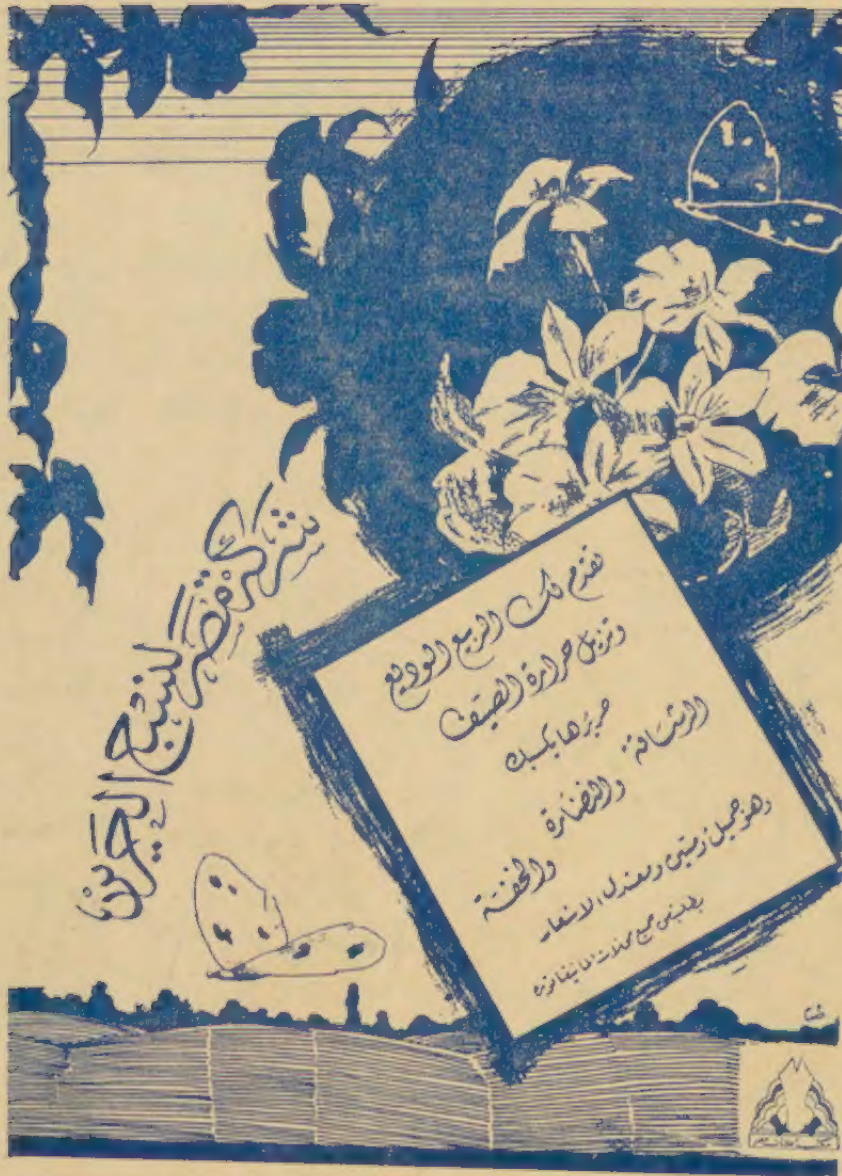 شركة مصر لنسج الحرير
تقدم لك الربيع الوديع
وتزيل حرارة الصيف
حريرها يكسبك
الرشاقة والنضارة والخفة
وهو جميل ومتين ومعتدل الأسعار
يطلب من جميع محلات المانيفاتوره